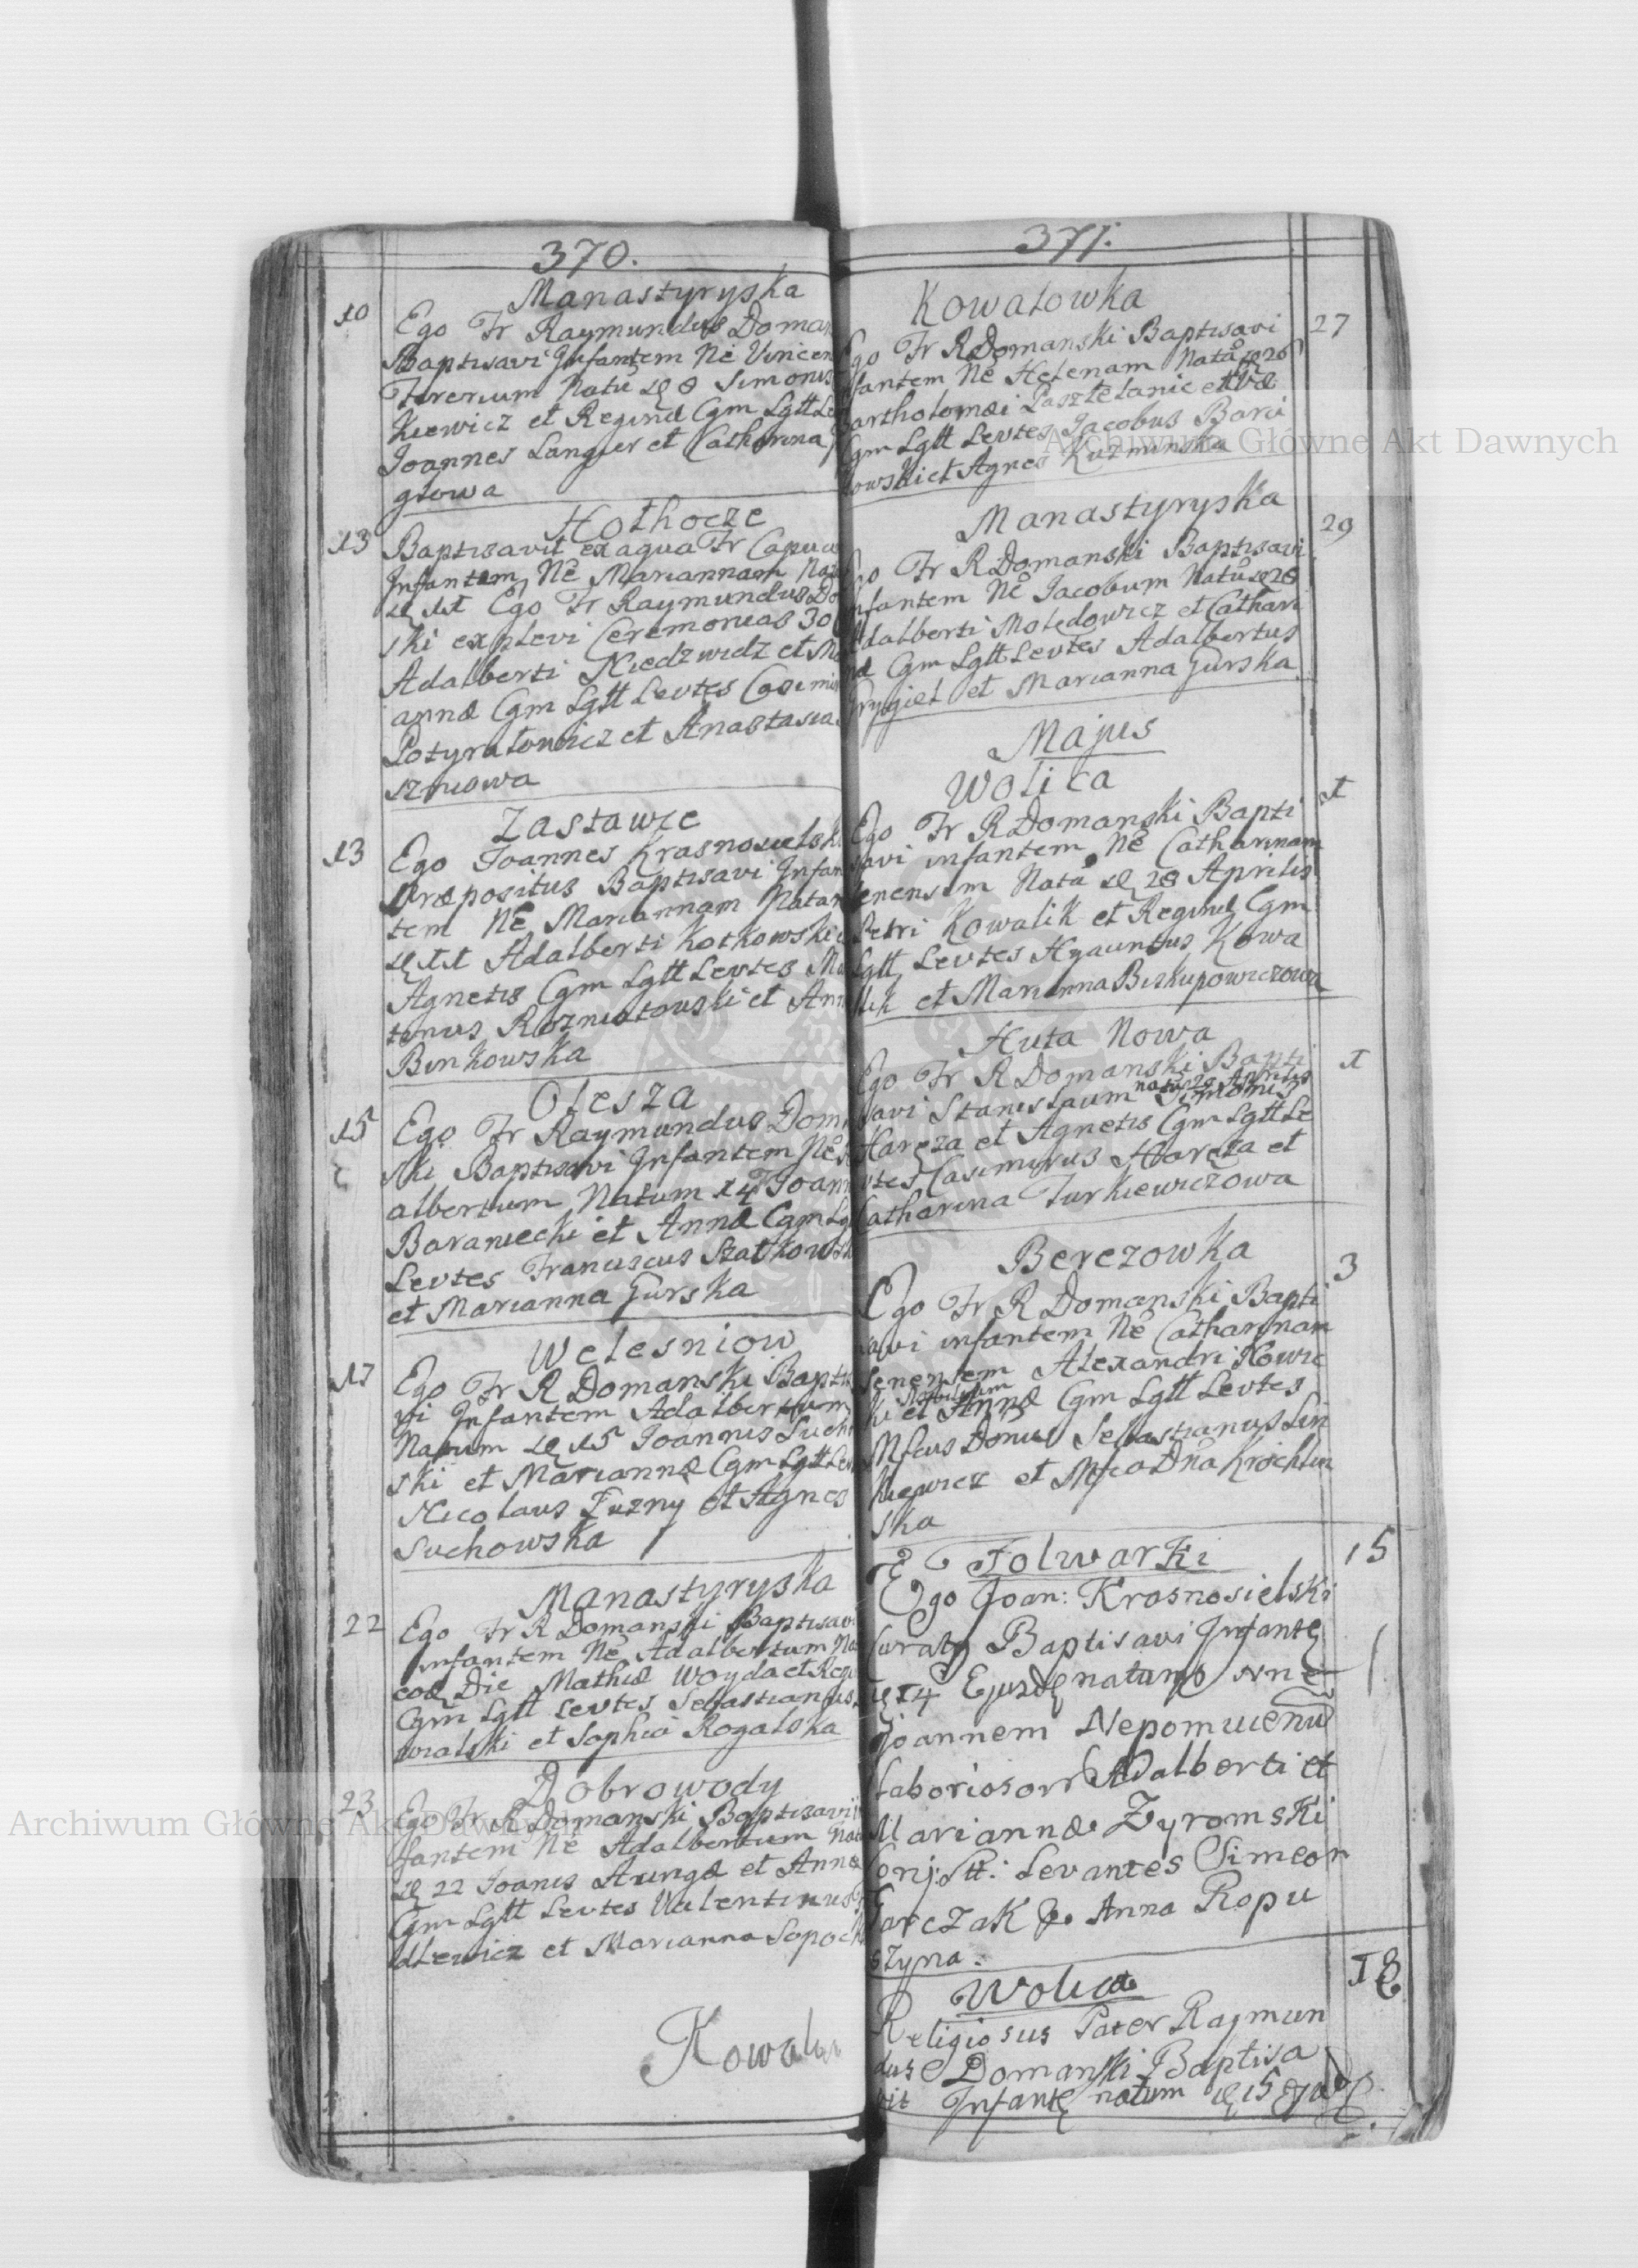 370.
Manastyryska
10
Ego Fr Raymundus Doman
Baptisavi Infantem Nė Vincen
Fererium Natū 8 Simonis
Kiewicz et Reginæ Cgm Lgtt
Joannes Langier et Catharina
głowa
Hothocze
13
Baptisavit ex aqua Fr
Infantem Nė Mariannam
Ego Fr Raymundus Do
ski explevi Ceremonias 30
Adalberti Niedzwidz et Ma
annæ Cgm Lgtt Levtes Casimi
Potyrałowicz et Anastasia
szniowa
Zastawce
13
Ego Joannes Krasnosielski
Præpositus Baptisavi Infan
tem Nė Mariannam Natam
11 Adalberti Kotkowski
Agnetis Cgm Lgtt Levtes Ma
tinus Rozniatowski et Ann
Binkowska
Olesza
15
Ego Fr Raymundus Dom
ski Baptisavi Infantem Nė
albertum Natum 14 Joann
Baraniecki et Annæ Cgm Lg
Levtes Franciscus Szatkowsk
et Marianna Gurska
Welesniow
17
Ego Fr R Domanski Baptis
vi Infantem Adalbertum
Natum 15 Joannis Sucho
ski et Mariannæ Cgm Lgtt Lev
Nicolaus Luzny et Agnes
Suchowska
Manastyryska
22
Ego Fr R Domanski Baptisavi
infantem Nė Adalbertum Na
eod Die Mathiæ Woyda et Regi
Cgm Lgtt Levtes Sebastianus
walski et Sophia Rogalska
Dobrowody
23
Ego Fr R Domanski Baptisavi
fantem Nė Adalbertum Nat
22 Joanis et Annæ
Cgm Lgtt Levtes Valentinus
dlewicz et Marianna Sopoch
Kowalo
371.
Kowalowka
27
Ego Fr R Domanski Baptisavi
fantem Nė Helenam Natå 26
Bartholomæi et
Cgm Lgtt Levtes Jacobus Bara
nowski et Agnes Kuzminska
Manastyryska
29
Ego Fr R Domanski Baptisavi
Infantem Nė Jacobum Natū 28
Adalberti Moledowicz et Cathari
næ Cgm Lgtt Levtes Adalbertus
Grygiel et Marianna Gurska
Majus
Wolica
1
Ego Fr R Domanski Bapti
savi infantem Nė Catharinam
Senensem Natā 28 Aprilis
Petri Kowalik et Reginæ Cgm
Lgtt Levtes Hyacintus Kowa
lik et Marianna Biskupowiczowa
Huta Nowa
1
Ego Fr R Domanski Bapti
natū Aprilis
savi Stanislaum Simonis
Haręza et Agnetis Cgm Lgtt Le
vtes Casimirus Haręza et
Catharina Turkiewiczowa
Berezowka
3
Ego Fr R Domanski Bapti
savi infantem Nė Catharinam
Senensem Alexandri Nowic
Nobilium
ki et Annæ Cgm Lgtt Levtes
Mfcus Dnus Sebastianus Lin
kiewicz et Mfca Dna Krochlin
ska
Folwarki
15
Ego Joan: Krasnosielski
Curatg Baptisavi Infantę
14 Ejuzdę natum Nnė
Joannem Nepomucenū
Laboriosorr Adalberti et
Mariannæ Zyromski
Conj: Ltt: Levantes Simeon
Garczak & Anna Ropu
szyna.
Wolica
18
Religiosus Pater Rajmun
dus Domanski Baptisa
vit Infantę natum 15